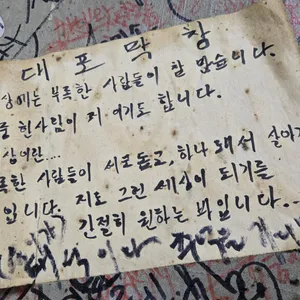 대포막창
상에는 부족한 사람들이 참 많습니다.
중 한사람이 저 이기도 합니다.
상이란...
족한 사람들이 서로 돕고, 하나 돼서 살아가
입니다. 저도 그런 세상이 되기를
간절히 원하는 바입니다...